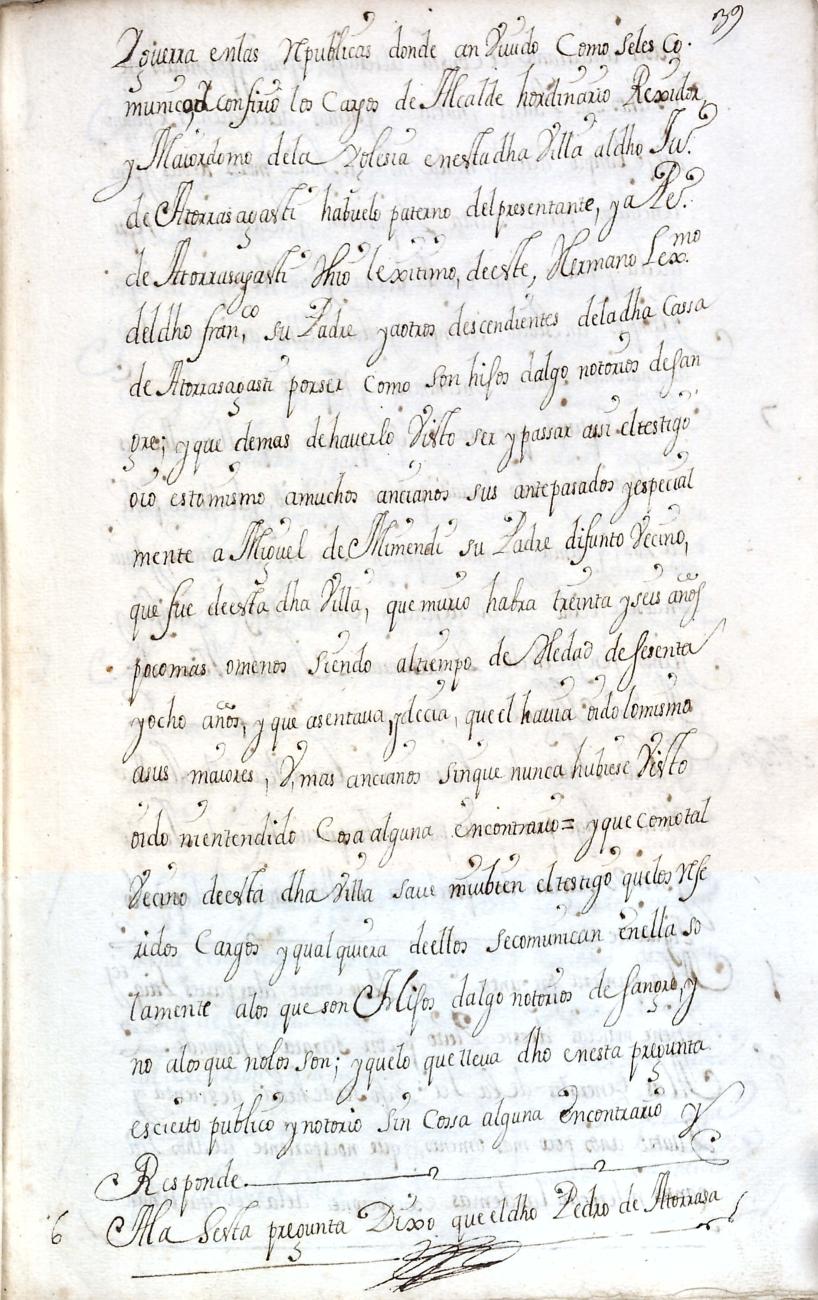 39
Zguerra enlas Republicas donde an Viuido Como seles Co.
municod confirio los Cargos de Alcalde hordinario Rexidor,
y Maiordomo dela Yglesia enestadha Villa aldho Ju.º
de Atorrasagasti habuelo paterno delpresentante, y a Pe.º
de Atorrasagasti Yhio lexitimo, deeste, Hermano Lex.mo
deldho fran,co su Padre yaotros descendientes deladha Cassa
de Atorrasagasti porser Como son hisos dalgo notorios desan
gre; yque demas dehaverlo Visto ser ypassar assi eltestigo
oio estomismo amuchos ancianos sus antepasados yespecial
mente a Miguel de Mimendi su Padre difunto Vecino,
que fue deesta dha Villa, que murio habra treinta yseis años
pocomas omenos siendo altiempo de Hedad desesenta
yocho años, yque asentava, ydecia, que el havia oido lomismo
asus maiores, Y, mas ancianos sinque nunca hubiese Visto
oido nientendido Cosa alguna encontrario = yque comotal
Vecino deesta dha Villa save muibien eltestigo quelos refe
ridos Cargos yqualquiera deellos secomunican enella so
lamente alos que son Hisos dalgo notorios de sangre, y
no alosque nolos son; yquelo quelleva dho enesta pregunta
escierto publico ynotorio sin Cossa alguna encontrario y
Responde.
6 Ala Sexta pregunta Dixo que eldho Pedro de Atorrasa